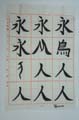 永永永
永
人人
人人人